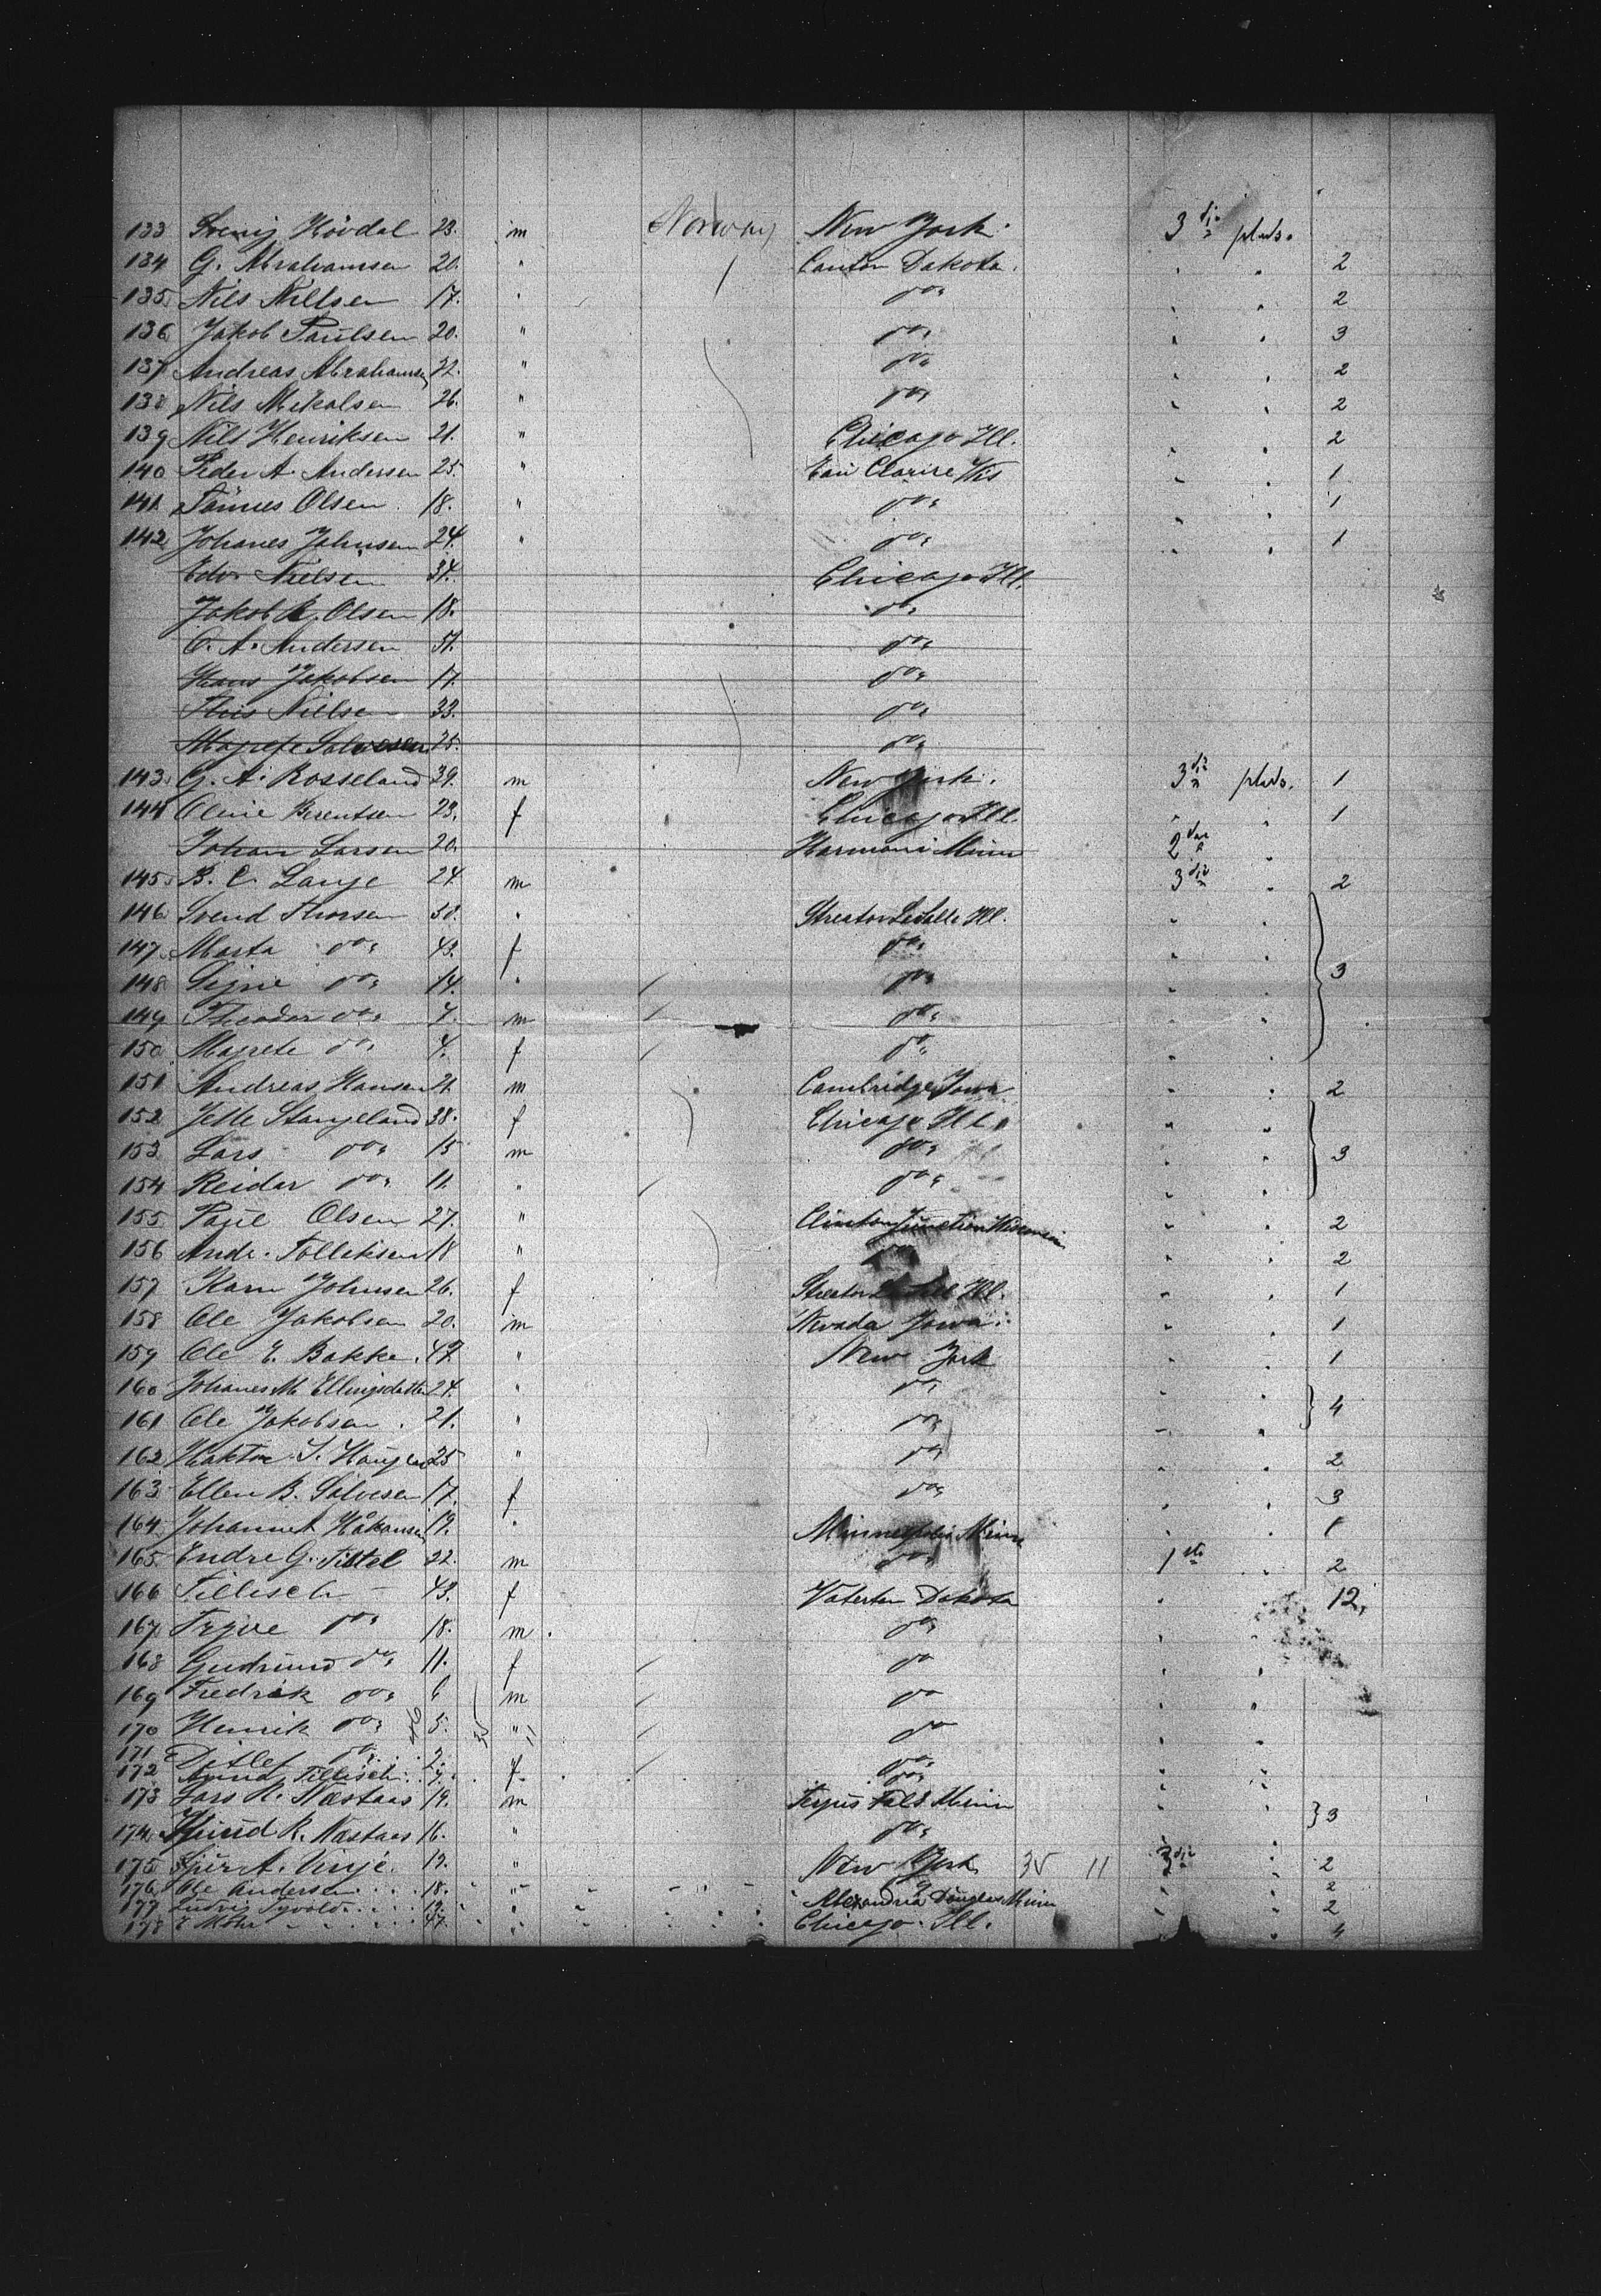 133 Svenij Hövdal 23. m Norway New York. 3die plads.
134 G. Abrahamsen 20. " Canton Dakota. " " 2
135 Nils Nillsen 17. " do " " 2
136 Jakob Paulsen 20. " do " " 3
137 Andreas Abrahamsen 22. " do " " 2
138 Nils Mikalsen 26. " do " " 2
139 Nils Henriksen 21. " Chicago Ill. " " 2
140 Peder A. Andersen 25. " Eau Clarire Wis " " 1
141 Tönnes Olsen 18. " do " " 1
142 Johanes Johnsen 24. " do " " 1
Nielsen 34. Chicago Ill.
Jakob Olsen 18. do
O. A. Andersen 51. do
Hans Jakobsen 17. do
Nillsen 33. do
Magrete Salvesen 25. do
143 G. A. Rosseland 39. m New York. 3die plads. 1
144 Oline Berentsen 23. f Chicago Ill. " " 1
Johan Larsen 20. Harmoni Minn 2den "
145 B. C. Lange 24. m 3die " 2
146 Svend Thorsen 50. " Streator LaSalle Ill. " "
147 Marta do 43. f do " "
148 Signe do 14. " do " " 3
149 Theodor do 7. m do " "
150 Magrete do 4. f do " "
151 Andreas Hansen 21. m Cambridge Jowa " " 2
152 Jette Stangeland 38. f Chicago Ill. " "
153 Lars do 15 m do " " 3
154 Reidar do 11. " do " "
155 Paul Olsen 27. " Clinton Junction Wisconsin " " 2
156 Andr. Tolleksen 18 " do " " 2
157 Karn Johnsen 26. f Streator Ill. " " 1
158 Ole Jakobsen 20. m Nevada Jowa. " " 1
159 Ole E. Bakke. 47. " New York " " 1
160 Johanes M Ellingsdatter 24. " do " "
161 Ole Jakobsen. 21. " do " " 4
162 S. Haugen 25 " do " " 2
163 Ellen B. Salvesen 17. f do " " 3
164 Johanne Håkansen 19. " Minneapolis Minn " " 1
165 Endre G. Tittel 22. m do 1ste " 2
166 Tillisch 43. f Waterten Dakota " " 12,
167 Trygve do 18. m. do " "
168 Gudrund do 11. f do " "
169 Fredrik do 6 m do " "
170 Henrik do 46 5. 35 " 11 do " "
171 Ditlef do 2. do " "
172 Tillisch f. do " "
173 Lars K. Næstaas 19. m Fergus Fals Minn " "
174 Knud K. Næstaas 16. " do " " 3
175 A. Vinje. 19. " New York 35 11 3die " 2
176 Ole Andersen 18. " " " 2
177 Ludvig 19. " Alexandria Douglas Minn " " 2
178 E Mohr 47. " Chicago. Ill. " " 4